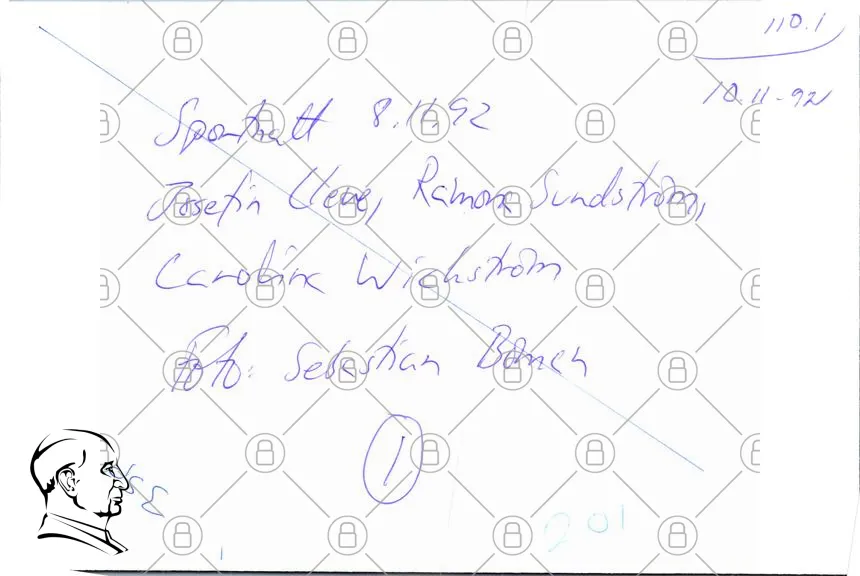 110.1
10.11-92
Sportnatt 8.11.92
Josefin Cleve, Ramona Sundström,
Caroline Wickström
Foto: Sebastian Boman
1
201